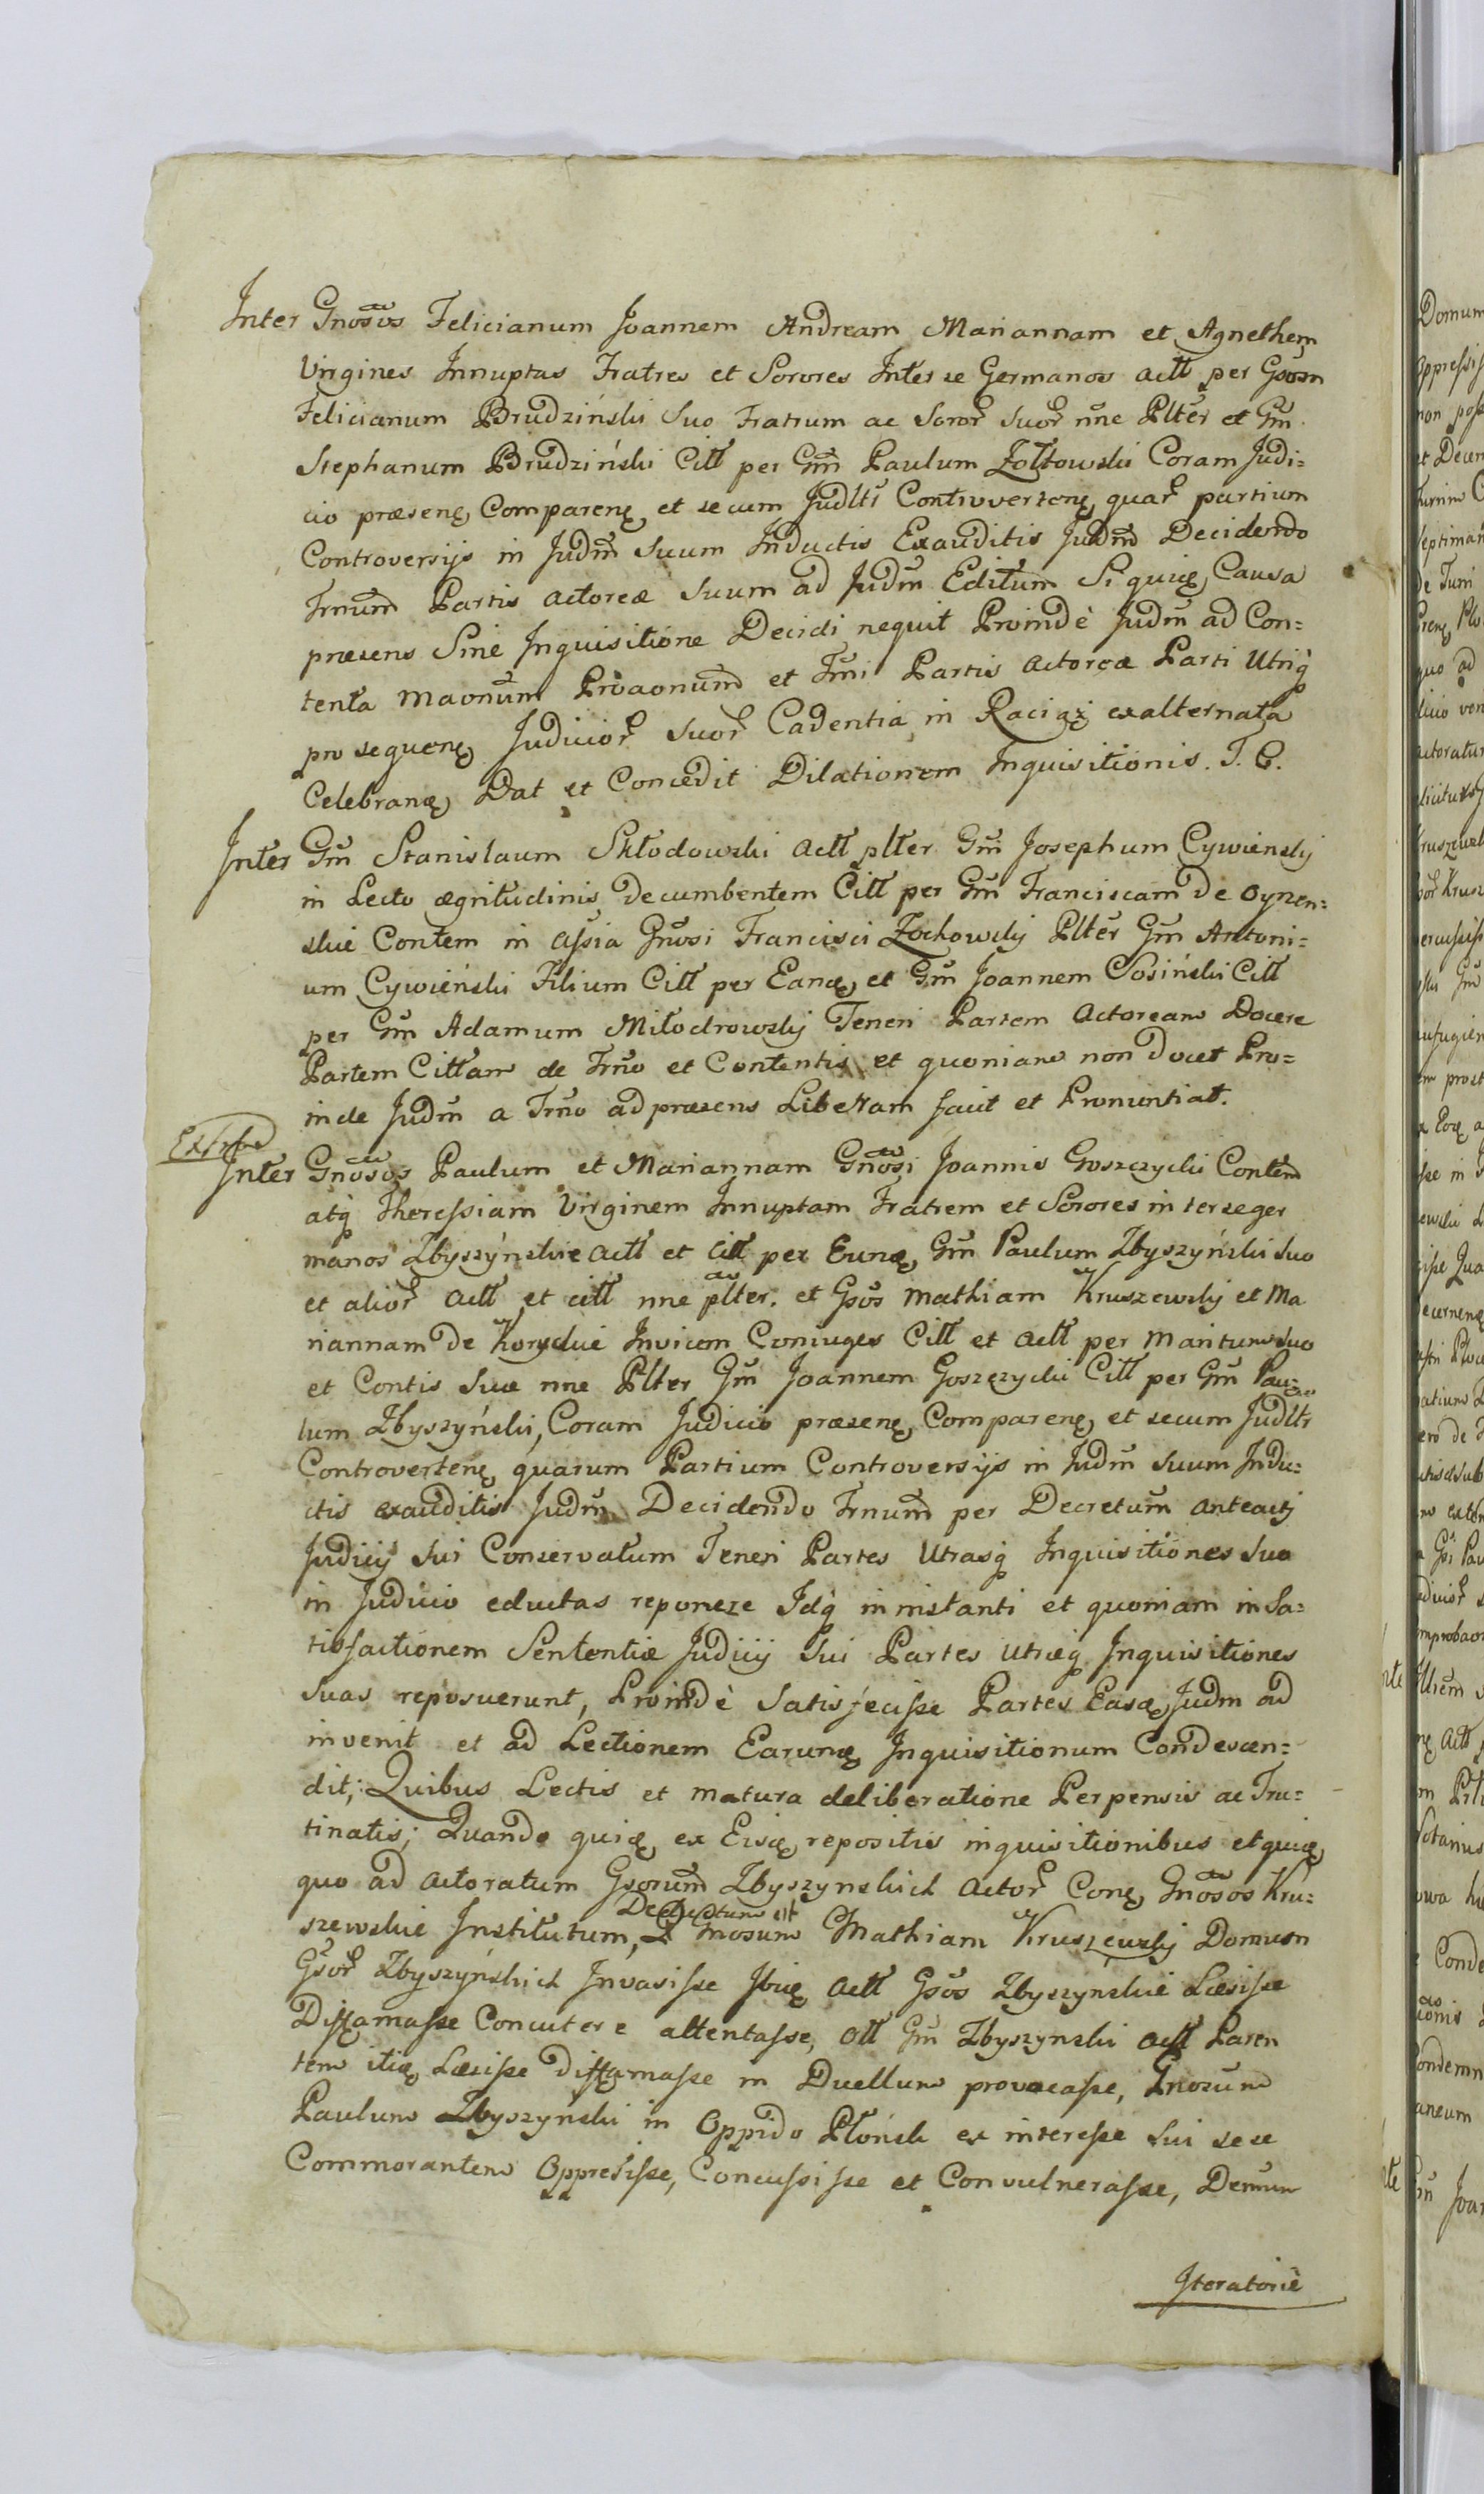 Inter Gnosos Felicianum Joannem Andream Mariannam et Agnethem
Virgines Innuptas Fratres et Sorores Inter se Germanos actt per Gsosm
Felicianum Brudzinski Suo Fratrum ac Soror Suor nne Plter et Gm
Stephanum Brudziński Citt per Gm Paulum Zołtowski Coram Judi=
cio præsenę Comparenę et secum Judltr Controvertenę quar partium
Controversijs in Judm Suum Inductis Exauditis Judm Decidendo
Trnum Partis actoreæ Suum ad Judm Editum Si quię Causa
præsens Sine Inquisitione Decidi nequit Proinde Judm ad Con=
tenta maonum Proaonum et Trni Partis Actoreæ Parti Utriq
pro sequenę Judicior Suor Cadentia in Raciąz exalternata
Celebranę Dat et Concedit Dilationem Inquisitionis. T. C.
Inter Gm Stanislaum Skłodowski actt plter Gm Josephum Cywienskj
in Lecto ægritudinis Decumbentem Citt per Gm Franciscam De Oynen=
skie Contem in Assia Gnosi Francisci Zochowskj Plter Gm Antoni=
um Cywieński Filium Citt per Eanę et Gm Joannem Sosiński Citt
per Gm Adamum Miłodrowskj Teneri Partem Actoream Docere
Partem Cittam de Trno et Contentis et quoniam non docet Pro=
inde Judm a Trno ad præsens Liberam facit et Pronuntiat.
Inter Gnosos Paulum et Mariannam Gnosi Joannis Goszczycki Contem
atq Theressiam Virginem Innuptam Fratrem et Sorores inter se ger
manos Zbyszynskie actt et citt per Eunę Gm Paulum Zbyszyński Suo
et alior actt et citt nne plter. et Gsos Mathiam Kruszewskj et Ma
riannam De Koryckie Invicem Coniuges Citt et actt per Maritum suo
et Contis Suæ nne Plter Gm Joannem Goszczycki Citt per Gm Pau=
lum Zbyszyński, Coram Judicio præsenę Comparenę et secum Judltr
Controvertenę quarum Partium Controversijs in Judm Suum Indu=
ctis exauditis Judm Decidendo Trnum per Decretum anteactj
Judicij Sui Conservatum Teneri Partes Utrasq Inquisitiones Suo
in Judicio eductas reponere Idq in instanti et quoniam in Sa=
tisfactionem Sententiæ Judicij Sui Partes utræq Inquisitiones
Suas reposuerunt, Proinde Satisfecisse Partes Easę Judm ad
invenit et ad Lectionem Earunę Inquisitionum Condescen=
dit; Quibus Lectis et matura deliberatione Perpensis ac Tru=
tinatis; Quando quię ex Eisę repositis inquisitionibus et quię
quo ad actoratum Gsorum Zbyszynskich Actor Conę Gnosos Kru=
Deductum est
szewskie Institutum, Gnosum Mathiam Kruszewskj Domum
Gsor Zbyszyńskich Invasisse Ibię actt Gsos Zbyszyńskie Læsisse
Diffamasse Concutere attentasse, ott Gm Zbyszynski actt Parten
tem itię Læsisse diffamasse in Duellum provocasse, Gnosum
Paulum Zbyszyński in Oppido Płońsk ex interesse Sui sese
Commorantem Oppresisse, Concussisse et Convulnerasse, Demum
Iteratoriè